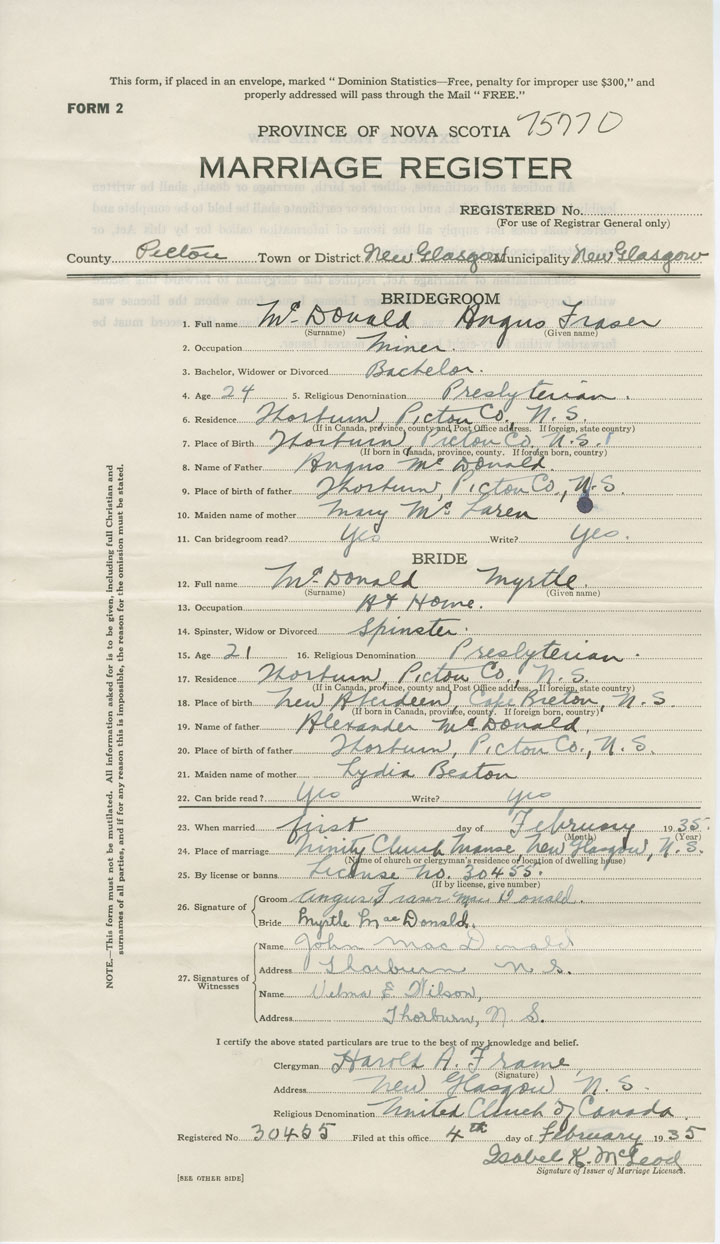 This form, if placed in an envelope, marked " Dominion Statistics—Free, penalty for improper use $300," and
properly addressed will pass through the Mail " FREE."
FORM 2
PROVINCE OF NOVA SCOTIA 75770
MARRIAGE REGISTER
REGISTERED No.
(For use of Registrar General only)
County Pictou Town or District New Glasgow Municipality New Glasgow
BRIDEGROOM
1. Full name McDonald Angus Fraser
(Surname) (Given name)
2. Occupation Miner.
3. Bachelor, Widower or Divorced Bachelor.
4. Age 24 5. Religious Denomination Presbyterian.
6. Residence Thorburn, Pictou Co., N. S.
(If in Canada, province, county and Post Office address. If foreign, state country)
7. Place of Birth Thorburn, Pictou Co., N. S.
(If born in Canada, province, county. If foreign born, country)
8. Name of Father Angus McDonald.
9. Place of birth of father Thorburn, Pictou Co., N.S.
10. Maiden name of mother Mary McLaren
11. Can bridegroom read? Yes Write? Yes.
BRIDE
12. Full name McDonald Myrtle.
(Surname) (Given name)
13. Occupation At Home.
14. Spinster, Widow or Divorced Spinster.
15. Age 21 16. Religious Denomination Presbyterian.
17. Residence Thorburn, Pictou Co., N. S.
(If in Canada, province, county and Post Office address. If foreign, state country)
18. Place of birth New Aberdeen, Cape Breton, N. S.
(If born in Canada, province, county. If foreign born, country)
19. Name of father Alexander McDonald,
20. Place of birth of father Thorburn, Pictou Co., N. S.
21. Maiden name of mother Lydia Beaton
22. Can bride read? Yes Write? Yes
23. When married first day of February 1935.
(Month) (Year)
24. Place of marriage Trinity Church Manse, New Glasgow, N. S.
(Name of church or clergyman's residence or location of dwelling house)
25. By license or banns License No. 30455.
(If by license, give number)
26. Signature of Groom Angus Fraser MacDonald.
Bride Myrtle MacDonald.
27. Signatures of Witnesses
Name John MacDonald
Address Thorburn N. S.
Name Velma E Wilson,
Address Thorburn, N. S.
I certify the above stated particulars are true to the best of my knowledge and belief.
Clergyman Harold A. Frame,
(Signature)
Address New Glasgow N. S.
Religious Denomination United Church of Canada.
Registered No 30455 Filed at this office 4th day of February 1935
Isabel K. McLeod
Signature of Issuer of Marriage Licenses.
[SEE OTHER SIDE]
NOTE.—This form must not be mutilated. All information asked for is to be given, including full Christian and
surnames of all parties, and if for any reason this is impossible, the reason for the omission must be stated.